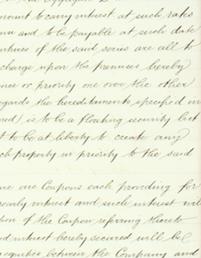 amount to carry interest at such rates
um and to be payable at such date
entures of the said series are all to
charge upon the premises hereby
nce or priority one over the other
egards the hereditaments specified in
ed) is to be a floating security but
t to be at liberty to create any
ch property in priority to the said
re are Coupons each providing for
yearly interest and such interest wil
tion of the Coupon referring thereto
nd interest hereby secured will be
equities between the Company and